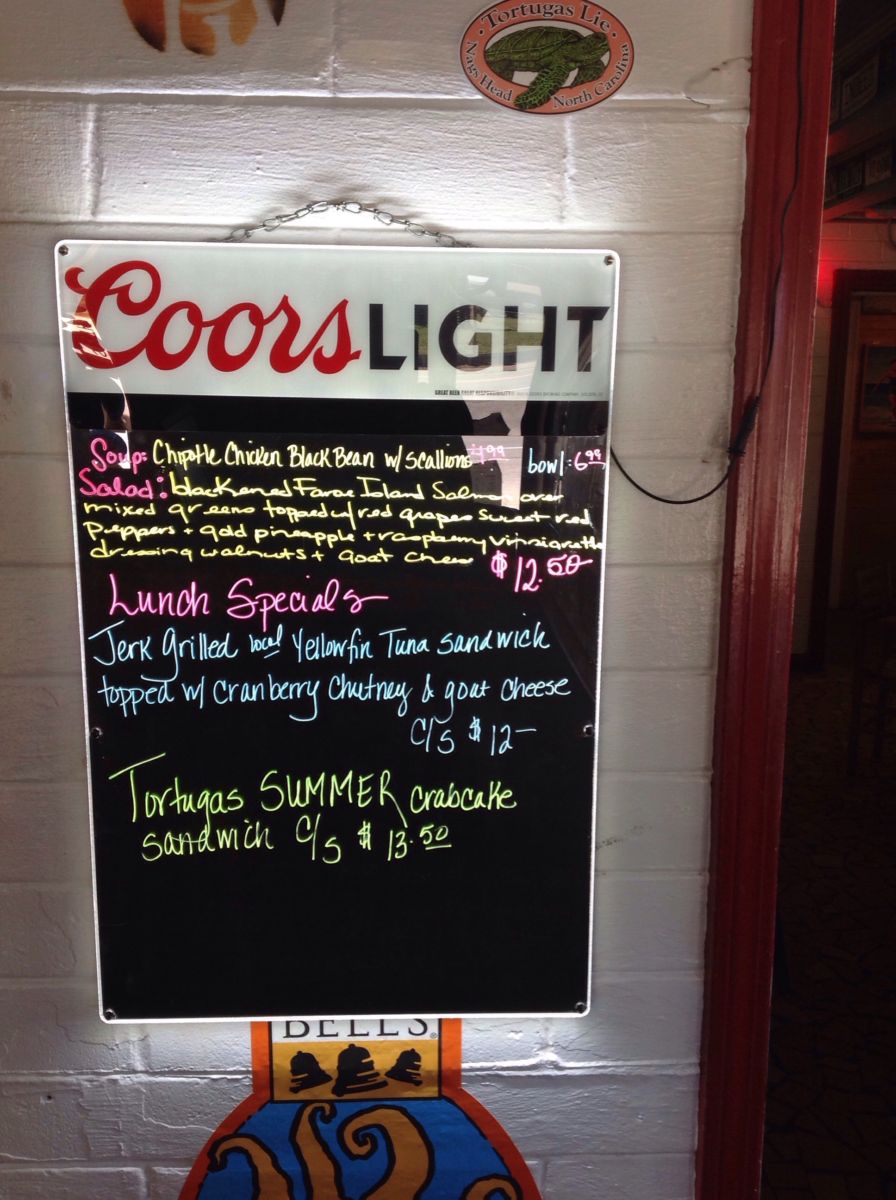 Tortugas Lie
Nags Head North Carolina
Coors LIGHT
GREAT BEER GREAT RESPONSIBILITY
Soup: Chipotle Chicken Black Bean w/ scallions 4.99 bowl: 6.99
Salad: blackened Faroe Island Salmon over
mixed greens topped w/ red grapes sweet red
peppers + gold pineapple + raspberry vinaigrette
dressing walnuts + goat cheese $12.50
Lunch Specials
Jerk grilled local Yellowfin Tuna sandwick
topped w/ cranberry Chutney & goat cheese
c/s $12-
Tortugas SUMMER crabcake
sandwich c/s $13.50
BELL'S